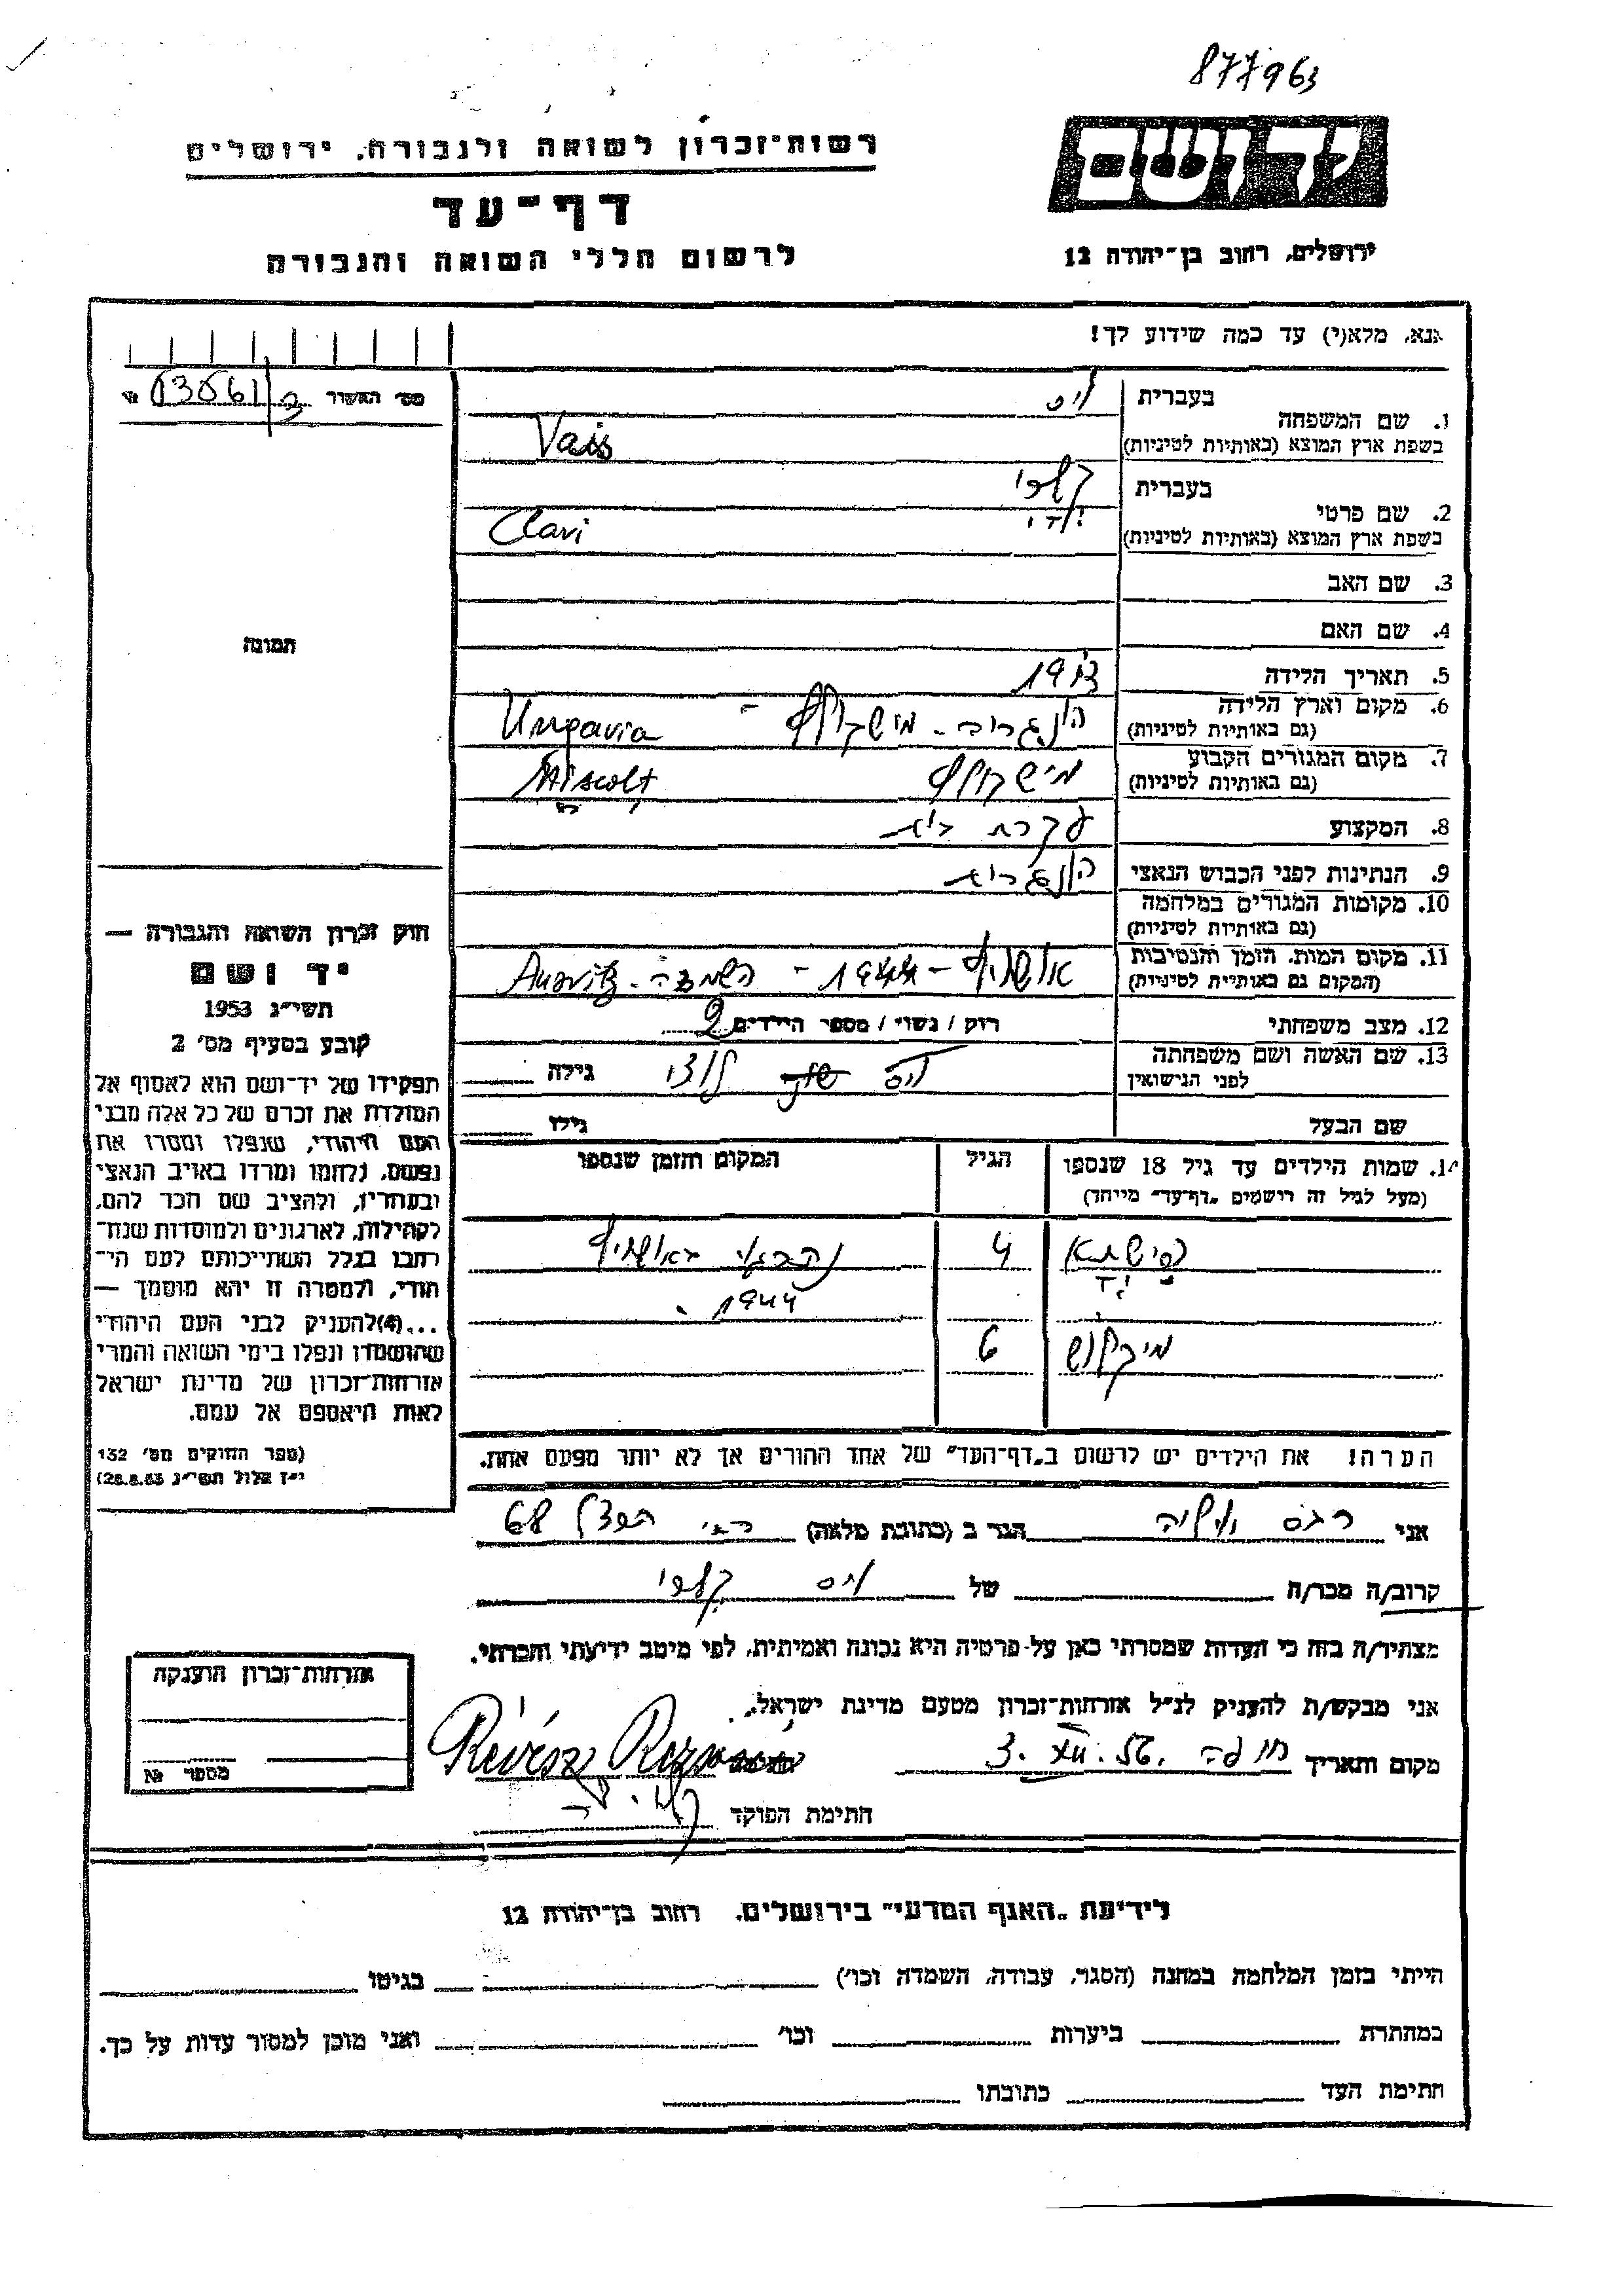 877963
יד ושם
רשות־זכרון לשואה ולגבורה, ירושלים
דף־עד
לרשום חללי השואה והגבורה
ירושלים, רחוב בן־יהודה 12
נא, מלא(י) עד כמה שידוע לך!
מס׳ האשור
1. שם המשפחה
בעברית וייס
בשפת ארץ המוצא (באותיות לטיניות) Vais
2. שם פרטי
בעברית קלרי
בשפת ארץ המוצא (באותיות לטיניות) Clari
3. שם האב
4. שם האם
5. תאריך הלידה
6. מקום וארץ הלידה
(גם באותיות לטיניות) הונגריה - מישקולץ - Ungaria
7. מקום המגורים הקבוע
(גם באותיות לטיניות) מישקולץ Miscolt
8. המקצוע עקרת בית
9. הנתינות לפני הכבוש הנאצי הונגרית
10. מקומות המגורים במלחמה
(גם באותיות לטיניות)
11. מקום המות, הזמן והנסיבות
(המקום גם באותיות לטיניות) אושויץ - 1944 - השמדה -
12. מצב משפחתי רוק / נשוי / מספר הילדים 2
13. שם האשה ושם משפחתה
לפני הנישואין וייס גילה
שם הבעל גילו
14. שמות הילדים עד גיל 18 שנספו הגיל המקום והזמן שנספו
(מעל לגיל זה רושמים „דף־עד״ מייחד)
4 נהרגו באושויץ
1944
מיקלוש 6
הערה! את הילדים יש לרשום ב„דף־העד״ של אחד ההורים אך לא יותר מפעם אחת.
תמונה
חוק זכרון השואה והגבורה —
יד ושם
תשי״ג 1953
קובע בסעיף מס׳ 2
תפקידו של יד־ושם הוא לאסוף אל
המולדת את זכרם של כל אלה מבני
העם היהודי, שנפלו ומסרו את
נפשם, נלחמו ומרדו באויב הנאצי
ובעוזריו, ולהציב שם וזכר להם,
לקהילות, לארגונים ולמוסדות שנח־
רבו בגלל השתייכותם לעם הי־
הודי, ולמטרה זו יהא מוסמך —
...(4)להעניק לבני העם היהודי
שהושמדו ונפלו בימי השואה והמרי
אזרחות־זכרון של מדינת ישראל
לאות היאספם אל עמם.
(ספר החוקים מס׳ 132
י״ז אלול תשי״ג 28.8.53)
אני הגר ב (כתובת מלאה) 68
קרוב/ה מכר/ה של וייס קלרי
מצהיר/ה בזה כי העדות שמסרתי כאן על פרטיה היא נכונה ואמיתית, לפי מיטב ידיעתי והכרתי.
אני מבקש/ת להעניק לנ״ל אזרחות־זכרון מטעם מדינת ישראל.
מקום ותאריך חיפה 3. XII. 56. Révész
חתימת הפוקד
אזרחות־זכרון הוענקה
מספר №
לידיעת „האגף המדעי״ בירושלים, רחוב בן־יהודה 12
הייתי בזמן המלחמה במחנה (הסגר, עבודה, השמדה וכו׳) בגיטו
במחתרת ביערות וכו׳ ואני מוכן למסור עדות על כך.
חתימת העד כתובתו